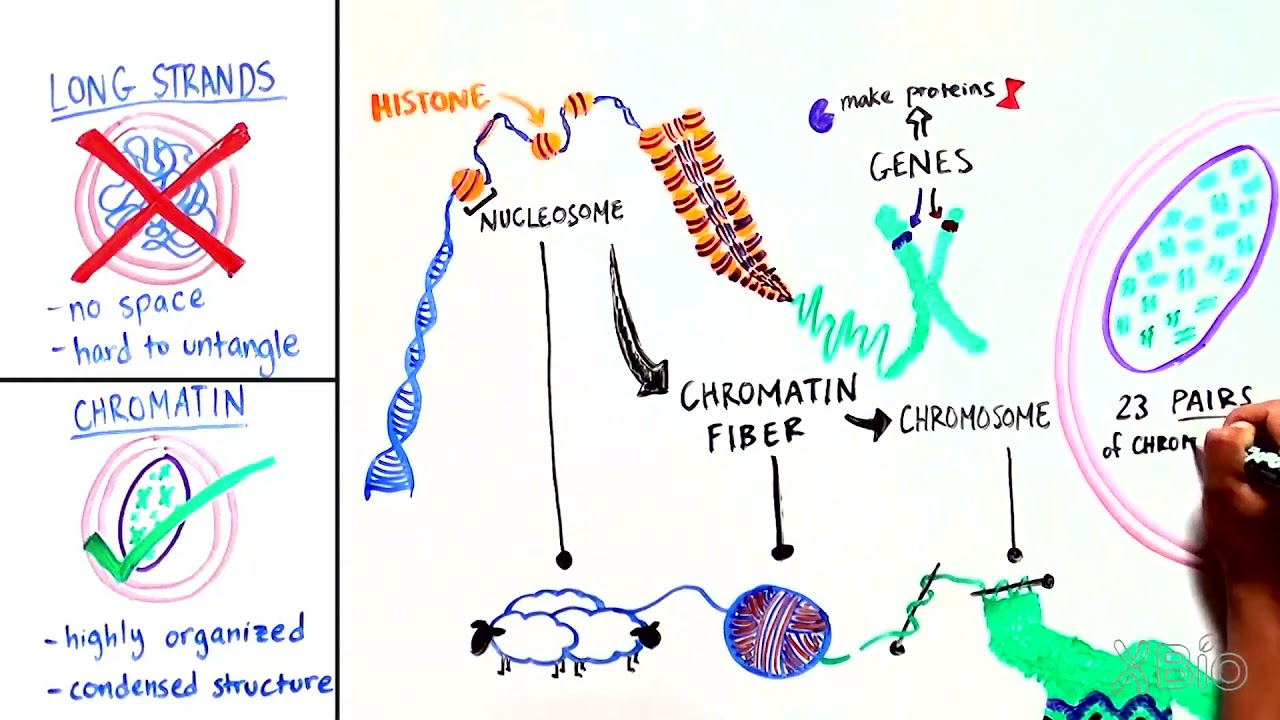 LONG STRANDS
-no space
-hard to untangle
CHROMATIN
-highly organized
-condensed structure
HISTONE
NUCLEOSOME
make proteins
GENES
CHROMATIN
FIBER
CHROMOSOME
23 PAIRS
of CHROM
XBio